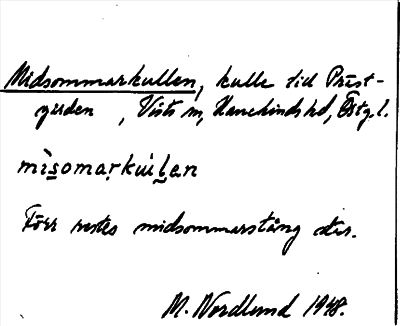 Midsommarkullen, kulle till Präst-
gården, Vists sn, Hanekinds hd, Östg. l.
mìs̠omaṛku̍l̠an
Förr restes midsommarstång där.
M. Nordlund 1948.